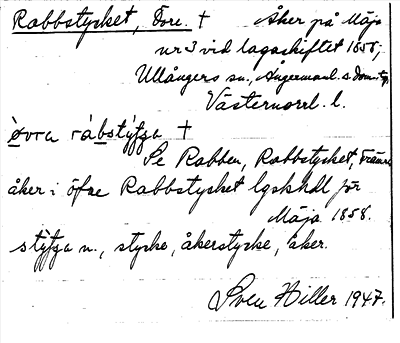 Rabbstycket, Övre. † Åker på Mäja
nr 3 vid lagaskiftet 1858,
Ullångers sn., Ångermanl. s.
Västernorrl. l.
övra rábstýʃʒa †
Se Rabben, Rabbstycket, Främre
åker i öfre Rabbstycket lgskhdl för
Mäja 1858.
stýʃʒa n., stycke, åkerstycke, åker.
Sven Hiller 1947.